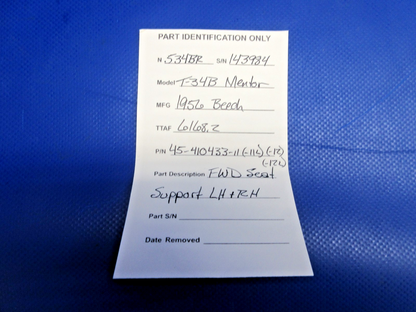 PART IDENTIFICATION ONLY
N 534BR S/N 143984
Model T-34B Mentor
MFG 1956 Beech
TTAF 6168.2
P/N 45-410433-11 (-11L) (-12)
(-12L)
Part Description FWD Seat
Support LH + RH
Part S/N
Date Removed